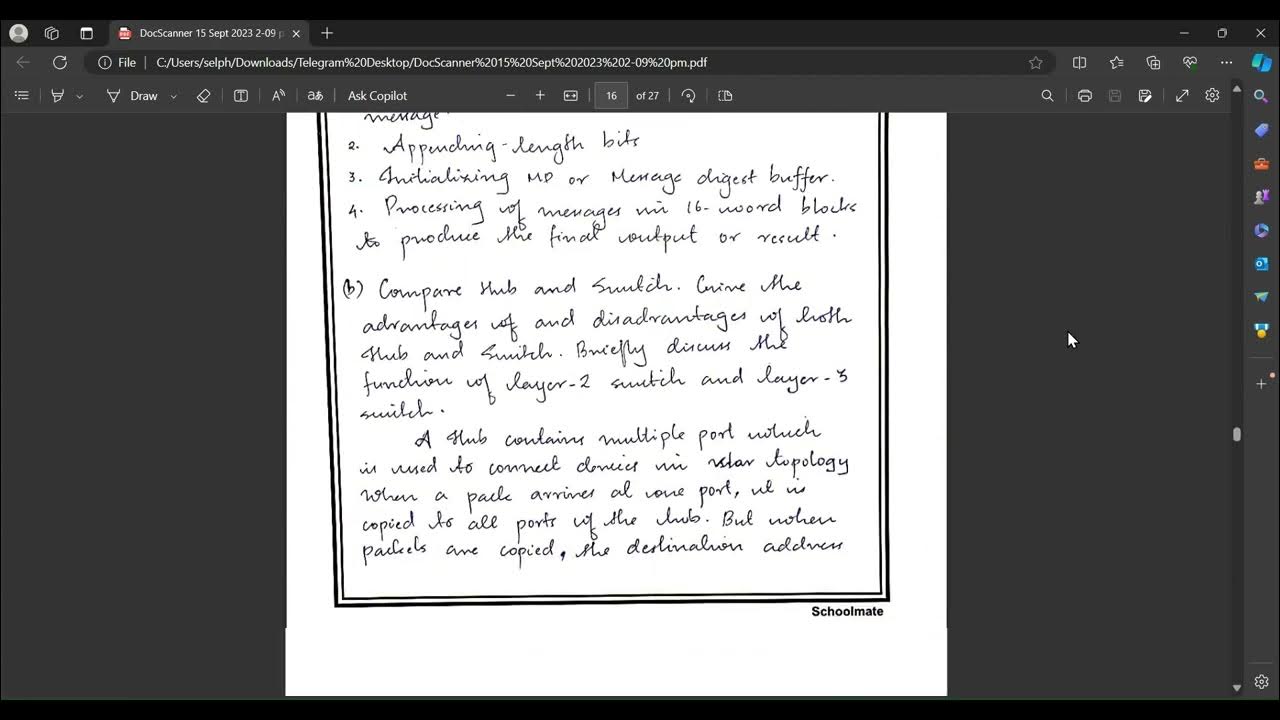 DocScanner 15 Sept 2023 2-09 p
File
C:/Users/selph/Downloads/Telegram%20Desktop/DocScanner%2015%20Sept%202023%202-09%20pm.pdf
Draw
aあ
Ask Copilot
16
of 27
message.
2. Appending-length bits
3. Initializing MD or Message digest buffer.
4. Processing of messages in 16-word blocks
to produce the final output or result.
(b) Compare Hub and Switch. Give the
advantages of and disadvantages of both
Hub and Switch. Briefly discuss the
function of layer-2 switch and layer-3
switch.
A Hub contains multiple port which
is used to connect devices in star topology
when a pack arrives at one port, it is
copied to all ports of the hub. But when
packets are copied, the destination address
Schoolmate